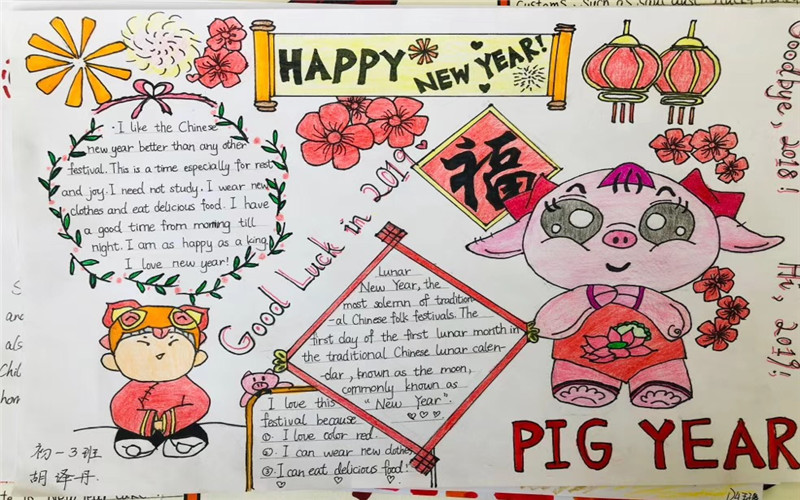 HAPPY NEW YEAR!
· I like the Chinese
new year better than any other
festival. This is a time especially for rest
and joy. I need not study. I wear new
clothes and eat delicious food. I have
a good time from morning till
night. I am as happy as a king.
I love new year!
Good Luck in 2019
福
Goodbye, 2018!
Hi, 2019!
Lunar
New Year, the
most solemn of tradition
-al Chinese folk festivals. The
first day of the first lunar month in
the traditional Chinese lunar calen-
-dar, known as the moon,
commonly known as
"New Year".
I love this
festival because
①. I love color red.
②. I can wear new clothes
③. I can eat delicious food!
PIG YEAR
初一3班
胡译丹